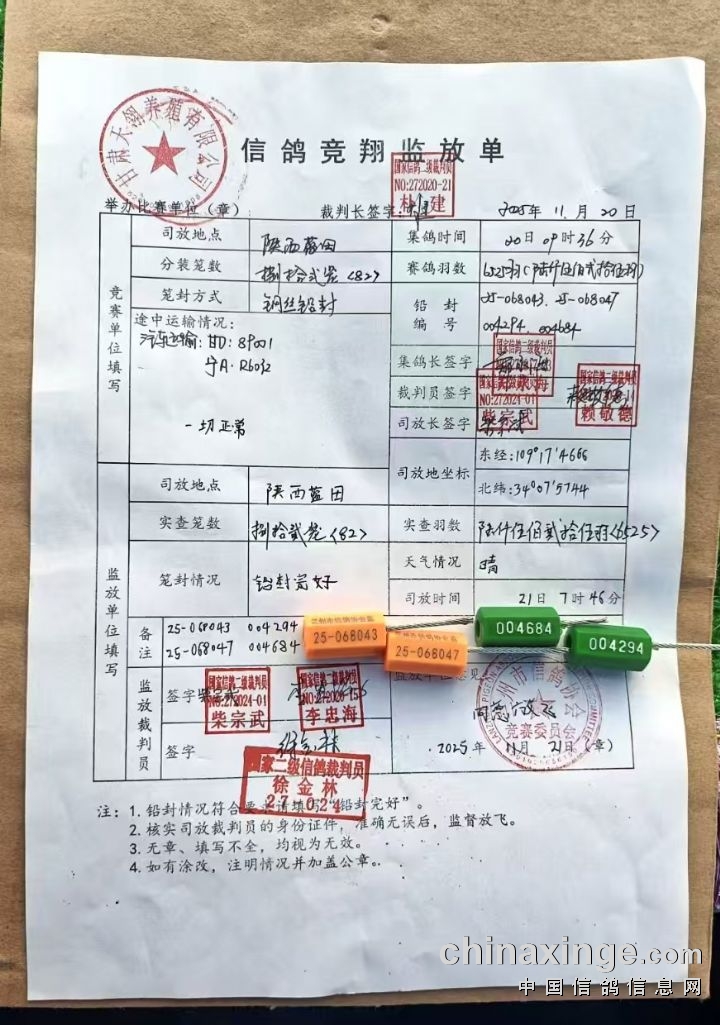 甘肃天翎养殖有限公司
信鸽竞翔监放单
国家信鸽二级裁判员
NO:272020-21
举办比赛单位（章）
裁判长签字:
2025年 11月 20日
竞赛单位填写
司放地点
陕西蓝田
集鸽时间
20日 09时36分
分装笼数
捌拾贰笼<82>
赛鸽羽数
笼封方式
钢丝铅封
铅封编号
25-068043. 25-068047
004294. 004684
途中运输情况:
汽车运输: 甘D: 89001
一切正常
集鸽长签字
裁判员签字
国家信鸽二级裁判员
NO:272024-01
柴宗武
国家信鸽二级裁判员
赖敬德
司放长签字
司放地坐标
东经:109°17'4666
北纬:34°07'5744
监放单位填写
司放地点
陕西蓝田
实查笼数
捌拾贰笼<82>
实查羽数
陆仟伍佰贰拾伍羽<6525>
笼封情况
铅封完好
天气情况
晴
司放时间
21日 7时46分
备注
25-068043 004294
25-068047 004684
兰州市信鸽协会监
25-068043
兰州市信鸽协会监
25-068047
004684
004294
监放裁判员
签字
国家信鸽二级裁判员
NO:272024-01
柴宗武
国家信鸽二级裁判员
李忠海
签字
国家二级信鸽裁判员
徐金林
监放单位意见
同意放飞
兰州市信鸽协会
竞赛委员会
2025年 11月 21日（章）
注：1. 铅封情况符合要求请填写“铅封完好”。
2. 核实司放裁判员的身份证件，准确无误后，监督放飞。
3. 无章、填写不全，均视为无效。
4. 如有涂改，注明情况并加盖公章。
chinaxinge.com
中国信鸽信息网